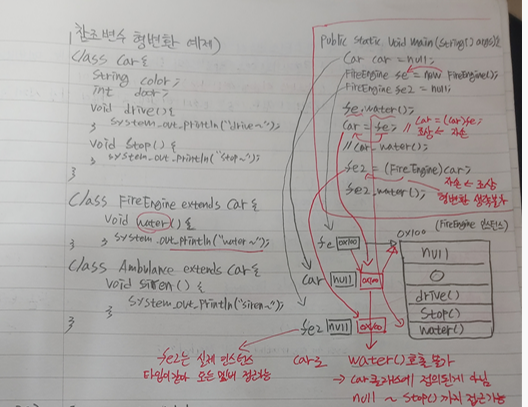 참조변수 형변환 예제)
Class Car {
String color;
int door;
void drive() {
System.out.println("drive~");
}
void Stop() {
System.out.println("stop~");
}
}
Class FireEngine extends Car {
Void water() {
System.out.println("water~");
}
}
Class Ambulance extends Car {
Void siren() {
System.out.println("siren~");
}
}
public static void main(String[] args) {
Car car = null;
FireEngine fe = new FireEngine();
FireEngine fe2 = null;
fe.water();
Car = fe; // Car = (Car)fe;
조상 ← 자손
// Car.water();
fe2 = (FireEngine)car;
자손 ← 조상
fe2.water();
형변환 생략불가
0x100
(FireEngine 인스턴스)
fe 0x100
null
0
drive()
Stop()
water()
Car null 0x100
fe2 null 0x100
fe2는 실제 인스턴스
타입이같아 모든 멤버 접근가능
car로 water() 호출 불가
→ Car클래스에 정의된게 아님
null ~ Stop() 까지 접근가능